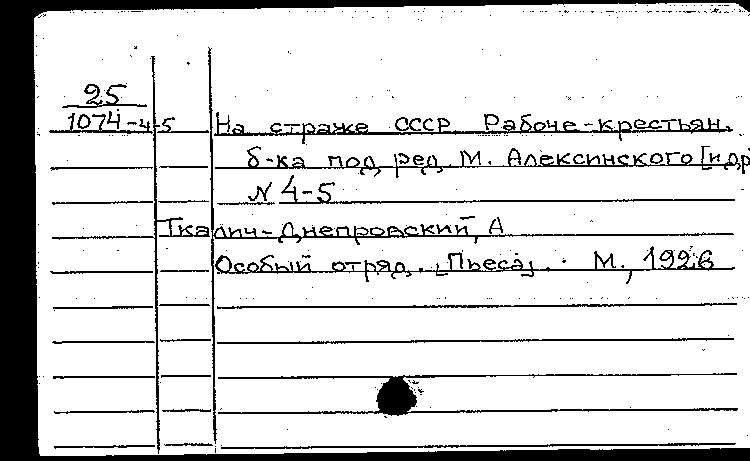 25
1074-4-5 На страже СССР. Рабоче-крестьян.
б-ка под ред. М. Алексинского [и др
N 4-5
Ткалич-Днепровский, А
Особый отряд. [Пьеса]. М., 1926